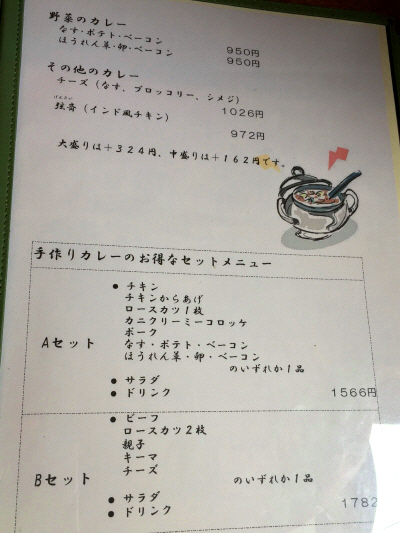 野菜のカレー
なす・ポテト・ベーコン 950円
ほうれん草・卵・ベーコン 950円
その他のカレー
チーズ（なす、ブロッコリー、シメジ） 1026円
げんさい
弦斎（インド風チキン） 972円
大盛りは＋３２４円、中盛りは＋１６２円です。
手作りカレーのお得なセットメニュー
● チキン
チキンからあげ
ロースカツ１枚
カニクリーミーコロッケ
ポーク
Aセット なす・ポテト・ベーコン
ほうれん草・卵・ベーコン
のいずれか１品
● サラダ
● ドリンク 1566円
● ビーフ
ロースカツ２枚
親子
キーマ
チーズ
Bセット のいずれか１品
● サラダ
● ドリンク 1782